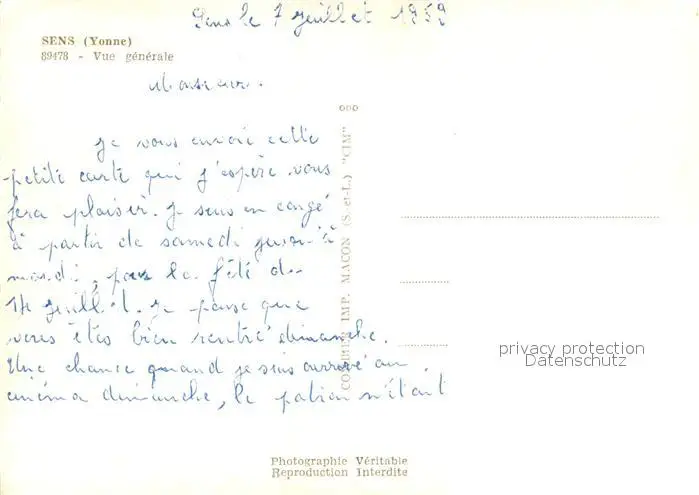 Sens le 7 juillet 1959
SENS (Yonne)
89478 - Vue générale
Monsieur.
Je vous envoie cette
petite carte qui j'espère vous
fera plaisir. Je suis en congé
à partir de samedi jusqu'à
mardi, pour la fête du
14 juillet. Je pense que
vous êtes bien rentré dimanche.
Une chance quand je suis arrivé au
cinéma dimanche, le patron n'était
COMBIER IMP. MACON (S.-et-L.) "CIM"
privacy protection
Datenschutz
Photographie Véritable
Reproduction Interdite